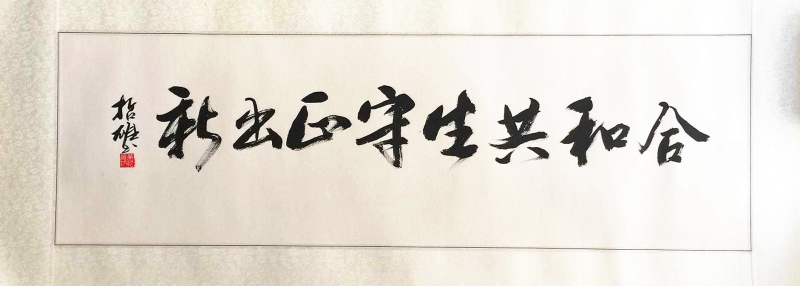 合和共生守正出新